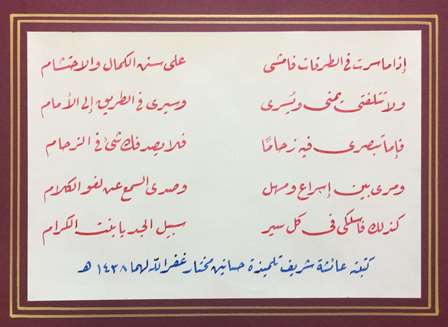 إذا ما سرت فى الطرقات فامشى على سنن الكمال والاحتشام
ولا تتلفتى يمنى ويسرى وسيرى فى الطريق إلى الأمام
فإما تبصرى فيه زحامًا فلا يصدفك شئ فى الزحام
ومرى بين إسراع ومهل وصدى السمع عن لغو الكلام
كذلك فاسلكى فى كل سير سبيل الجد يا بنت الكرام
كتبته عائشة شريف تلميذة حسانين مختار غفر الله لهما ١٤٣٨ هـ